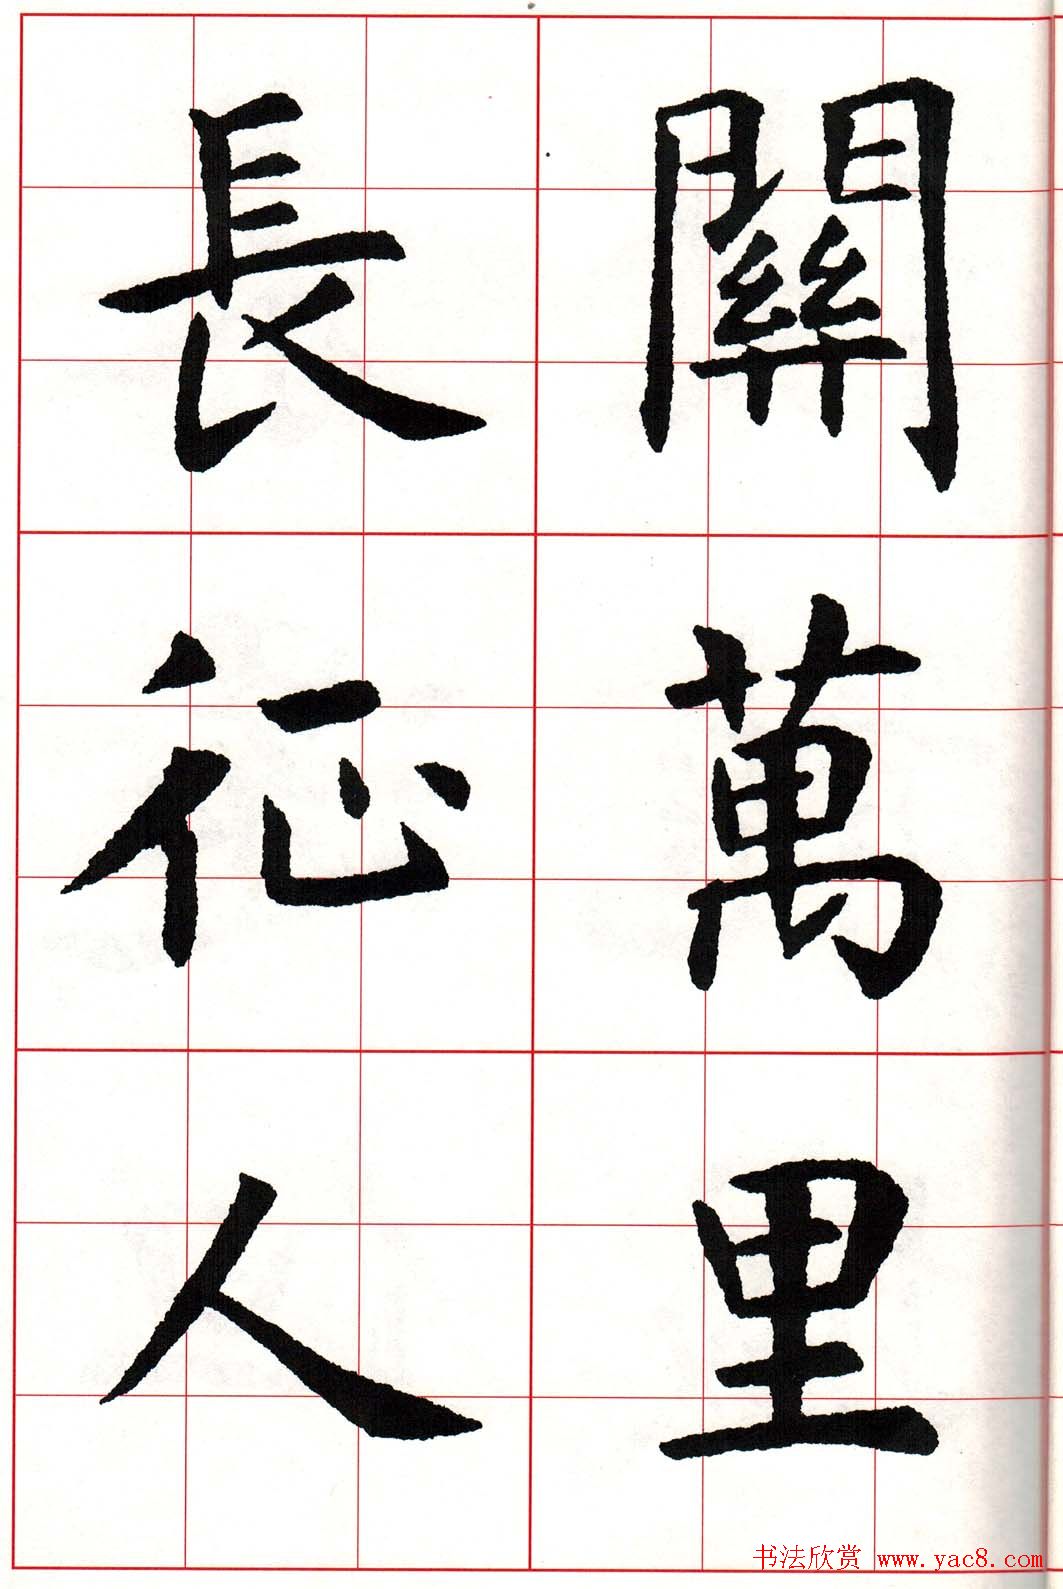 關萬里
長征人
书法欣赏 www.yac8.com